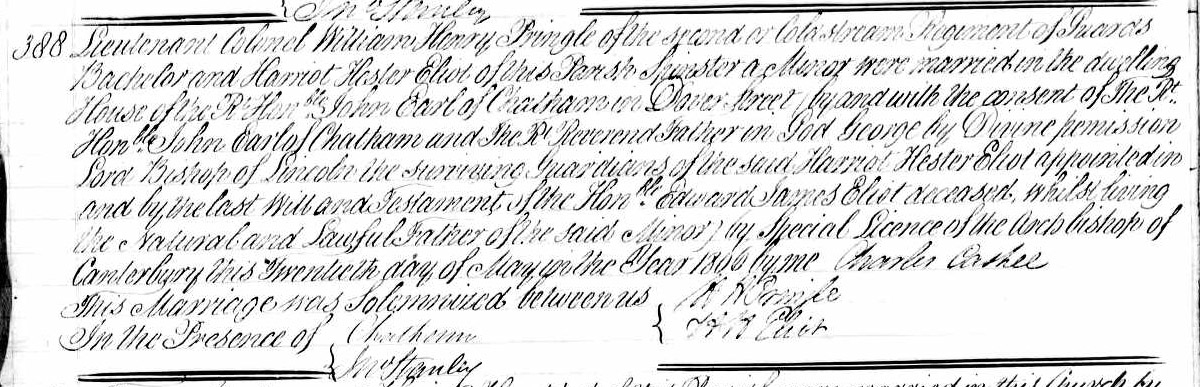 Jno Stanley
388 Lieutenant Colonel William Henry Pringle of the second or Coldstream Regiment of Guards
Bachelor and Harriot Hester Eliot of this Parish Spinster a Minor were married in the dwelling
House of the Rt Honble John Earl of Chatham in Dover Street (by and with the consent of The Rt.
Honble John Earl of Chatham and The Rt Reverend Father in God George by Divine permission
Lord Bishop of Lincoln the surviving Guardians of the said Harriot Hester Eliot appointed in
and by the last Will and Testament of the Honble Edward James Eliot deceased, whilst living
the Natural and Lawful Father of the said Minor) by Special Licence of the Arch bishop of
Canterbury this Twentieth day of May in the Year 1806 by me Charles Cashel
This Marriage was Solemnized between us W H Pringle
H H Eliot
In the Presence of Chatham
Jno Stanley
married in this Church by